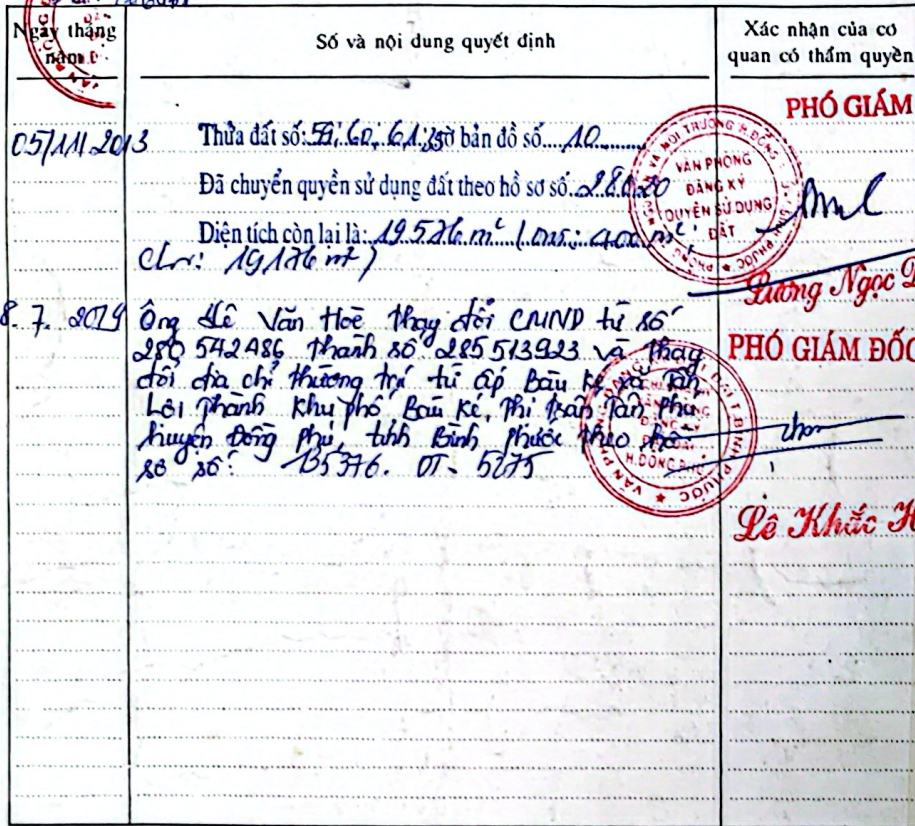 Ngày tháng năm
Số và nội dung quyết định
Xác nhận của cơ quan có thẩm quyền
05/11/2013
Thửa đất số: 60, 61, tờ bản đồ số 10
Đã chuyển quyền sử dụng đất theo hồ sơ số 28620
Diện tích còn lại là: 19.576 m² (ONT: 400 m²,
CLN: 19176 m²)
PHÓ GIÁM
VĂN PHÒNG
ĐĂNG KÝ
QUYỀN SỬ DỤNG
ĐẤT
Lương Ngọc
8. 7. 2019
Ông Lê Văn Hoè thay đổi CMND từ số
280 542486 thành số 285 513923 và thay
đổi địa chỉ thường trú từ ấp Bàu Ké xã Tân
Lợi thành khu phố Bàu Ké, thị trấn Tân Phú
huyện Đồng Phú, tỉnh Bình Phước theo hồ
sơ số: 135376. ĐT- 5275
PHÓ GIÁM ĐỐC
H.ĐỒNG PHÚ
Lê Khắc